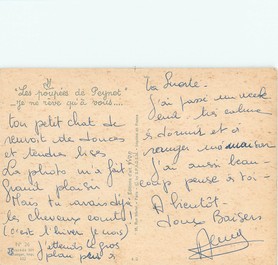 "Les poupées de Peynet"
...je ne rêve qu'à vous....
ton petit chat de
renvoit de douces
et tendres bises
La photo m'a fait
Grand plaisir
Mais tu avais déjà
les cheveux courts!
(c'est l'hiver je
J'attends le gros
plan
J'ai passé un week
end très calme
à dormir et à
ranger ma maison
J'ai aussi beau-
coup pensé à toi -
A bientôt
Doux Baisers